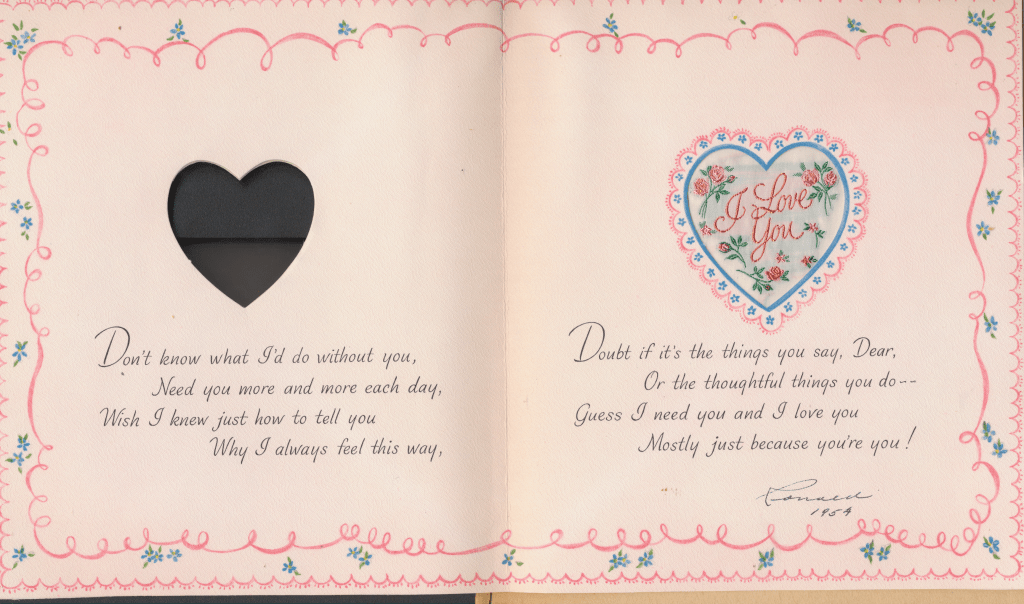 Don't know what I'd do without you,
Need you more and more each day,
Wish I knew just how to tell you
Why I always feel this way,
I Love
You
Doubt if it's the things you say, Dear,
Or the thoughtful things you do--
Guess I need you and I love you
Mostly just because you're you!
Ronald
1954